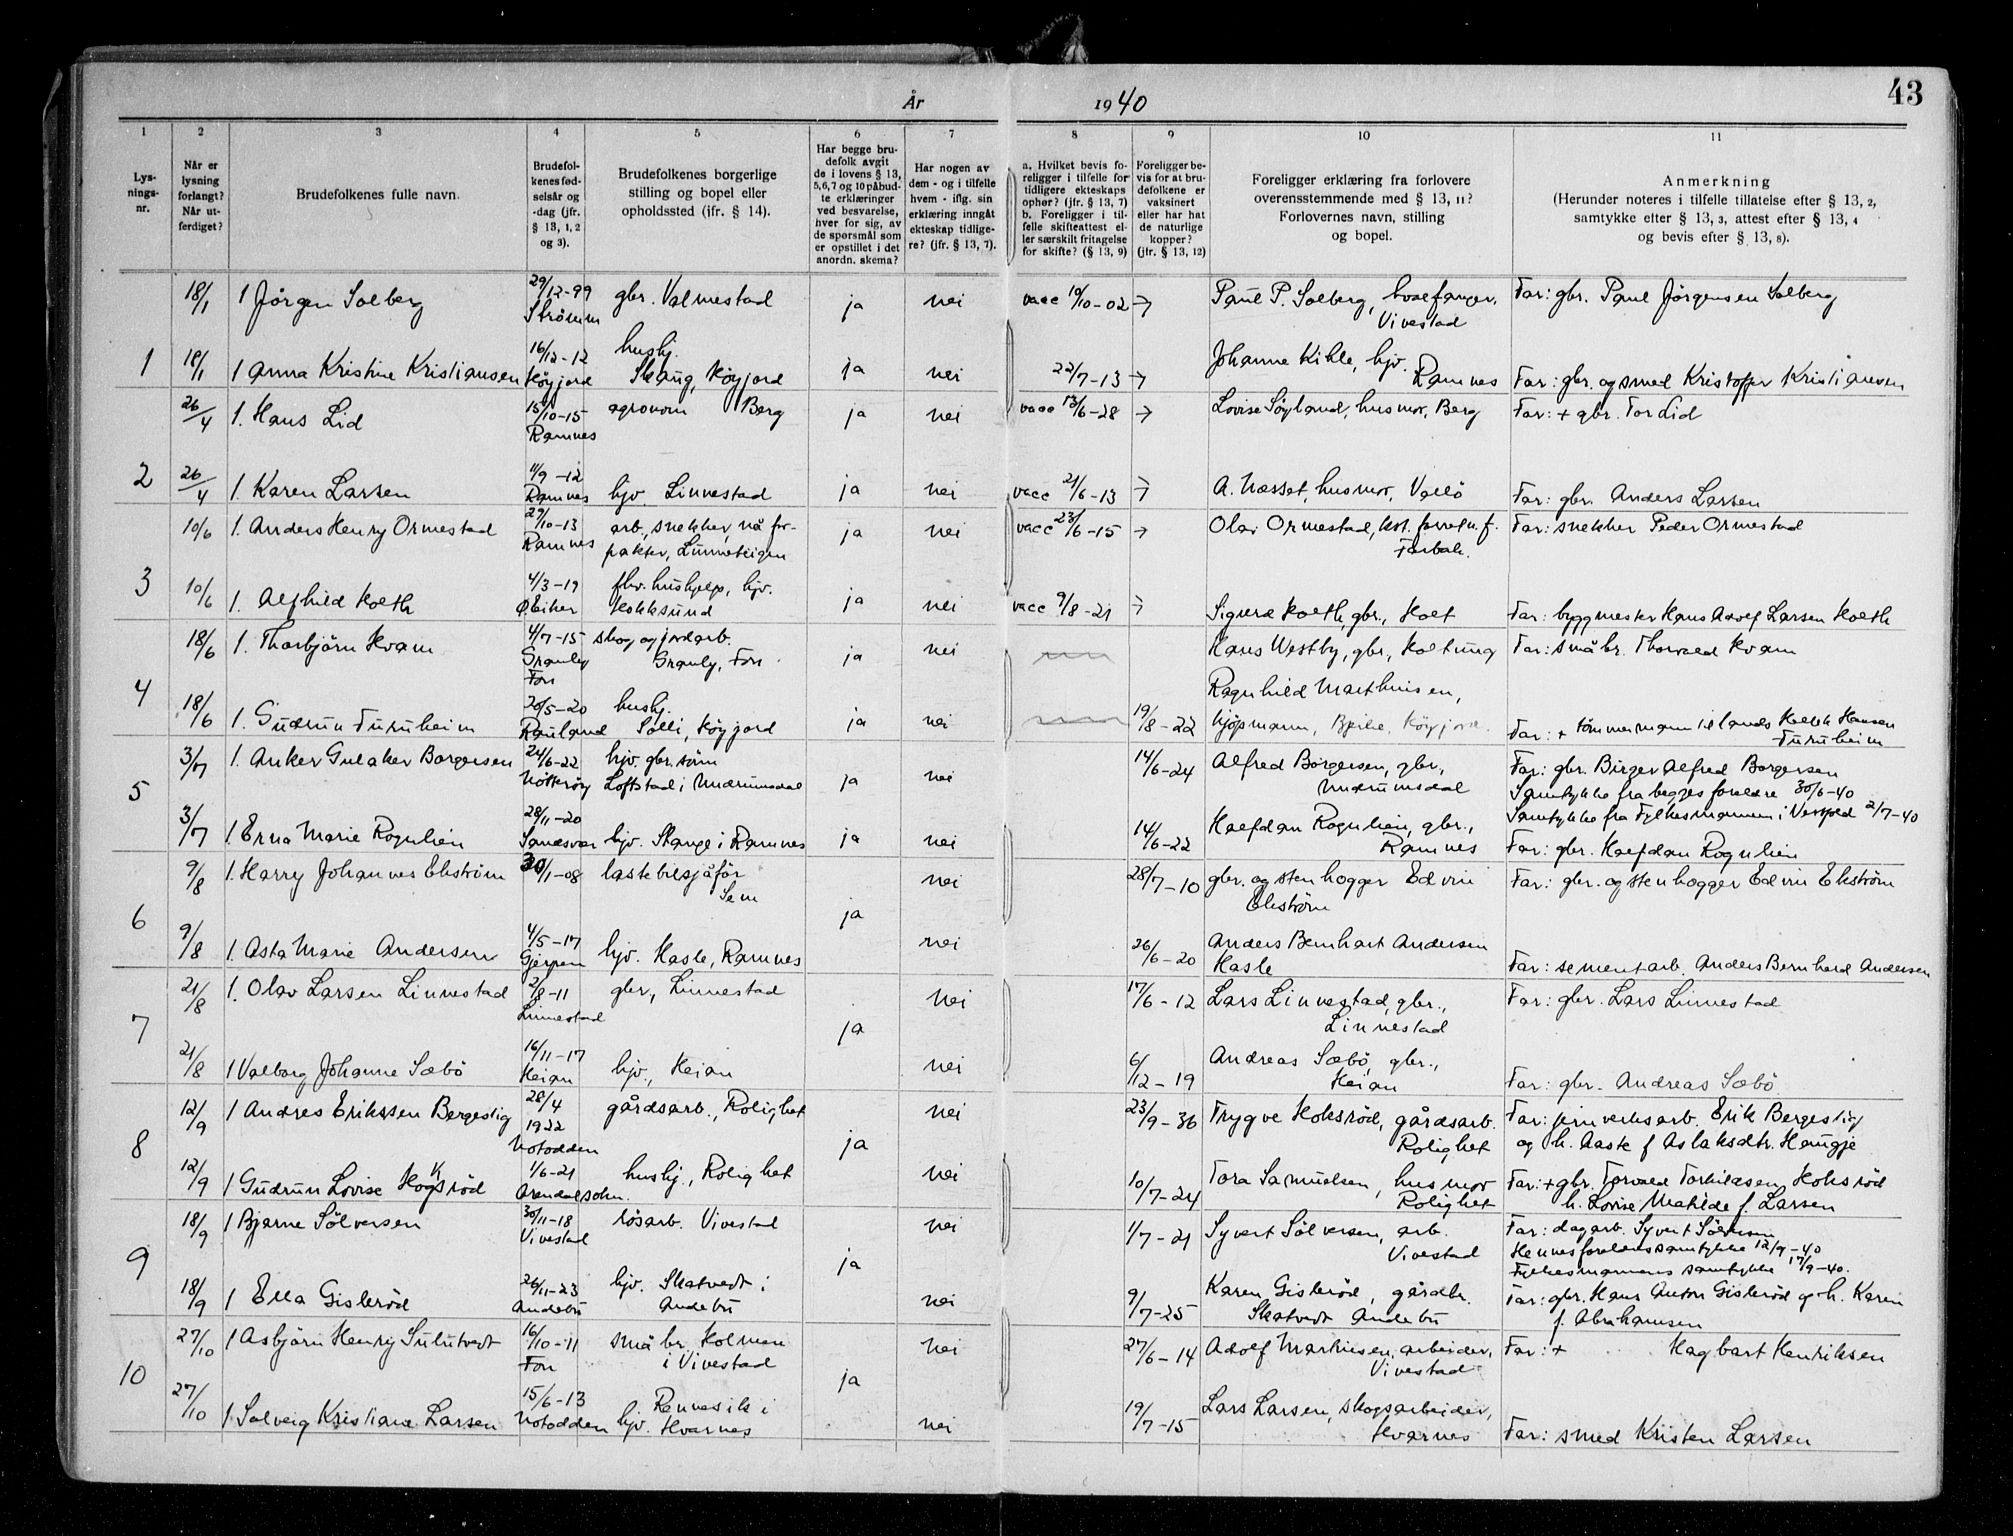 43
År 1940
1 2 3 4 5 6 7 8 9 10 11
Lys-
nings-
nr.
Når er
lysning
forlangt?
Når ut-
ferdiget?
Brudefolkenes fulle navn.
Brudefol-
kenes fød-
selsår og
-dag (jfr.
§ 13, 1, 2
og 3).
Brudefolkenes borgerlige
stilling og bopel eller
opholdssted (jfr. § 14).
Har begge bru-
defolk avgit
de i lovens § 13,
5, 6, 7 og 10 påbud-
te erklæringer
ved besvarelse,
hver for sig, av
de spørsmål som
er opstillet i det
anordn. skema?
Har nogen av
dem - og i tilfelle
hvem - iflg. sin
erklæring inngått
ekteskap tidlige-
re? (jfr. § 13, 7).
a. Hvilket bevis fo-
religger i tilfelle for
tidligere ekteskaps
ophør? (jfr. § 13, 7)
b. Foreligger i til-
felle skifteattest el-
ler særskilt fritagelse
for skifte? (§ 13, 9)
Foreligger be-
vis for at bru-
defolkene er
vaksinert
eller har hat
de naturlige
kopper?
(jfr. § 13, 12)
Foreligger erklæring fra forlovere
overensstemmende med § 13, 11?
Forlovernes navn, stilling
og bopel.
Anmerkning
(Herunder noteres i tilfelle tillatelse efter § 13, 2,
samtykke efter § 13, 3, attest efter § 13, 4
og bevis efter § 13, 8).
18/1 1 Jörgen Solberg 29/12-99 Strömm gbr. Valmestad ja nei vacc 10/10-02 → Paul P. Solberg, hvalfanger, Vivestad Far: gbr. Paul Jörgensen Solberg
1 18/1 1 Anna Kristine Kristiansen 16/12-12 Höyjord hushj. Skaug, Höyjord ja nei 22/7-13 → Johanne Kihle, hjv. Ramnes Far: gbr. og smed Kristoffer Kristiansen
26/4 1. Hans Lid 15/10-15 Ramnes agronom Berg ja nei vacc 13/6-28 → Lovise Söyland, husmor, Berg Far: + gbr. Tor Lid
2 26/4 1. Karen Larsen 11/9-12 Ramnes hjv. Linnestad ja nei vacc 21/6-13 → A. Næsset, husmor, Vallö Far: gbr. Anders Larsen
10/6 1. Anders Henry Ormestad 29/10-13 Ramnes arb., snekker, nå for-
pakter, Linnesteigen ja nei vacc 23/6-15 → Olav Ormestad, kst. Far: snekker Peder Ormestad
3 10/6 1. Alfhild Holth 4/3-19 Ø. Eiker fhv. hushjelp, hjv. Hokksund ja nei vacc 9/8-21 → Sigurd Holth, gbr., Holt Far: byggmester Hans Adolf Larsen Holth
18/6 1. Thorbjörn Kvam 4/7-15 Gramly Fon skog og jordarb. Gramly, Fon ja nei Hans Westby, gbr., Holtung Far: småbr. Thorvald Kvam
4 18/6 1. Gudrun Furuheim 20/5-20 Rauland hushj. Solli, Höyjord ja nei 19/8-22 Ragnhild Mathisen,
kjöpmann, Höyjord. Far: + tömmermann Hansen
Furuheim
3/7 1. Anker Gulaker Borgersen 24/6-22 Nötteröy hjv. gbr. sönn
Loftstad i Undrumsdal ja nei 14/6-24 Alfred Borgersen, gbr.,
Undrumsdal Far: gbr. Birger Alfred Borgersen
Samtykke fra begges foreldre 30/6-40
Samtykke fra Fylkesmannen i Vestfold 2/7-40
5 3/7 1. Erna Marie Rognlien 28/11-20 Sandsvær hjv. Skange i Ramnes ja nei 14/6-22 Halfdan Rognlien, gbr.,
Ramnes Far: gbr. Halfdan Rognlien
9/8 1. Harry Johannes Ekström 30/1-08 lastebilsjåför
Sem nei 28/7-10 gbr. og stenhogger Edvin
Ekström Far: gbr. og stenhogger Edvin Ekström
6 ja
9/8 1. Asta Marie Andersen 4/5-17 Gjerpen hjv. Hasle, Ramnes nei 26/6-20 Anders Bernhart Andersen
Hasle Far: sementarb. Anders Bernhard Andersen
21/8 1. Olav Larsen Linnestad 2/8-11 Linnestad gbr., Linnestad nei 17/6-12 Lars Linnestad, gbr.,
Linnestad Far: gbr. Lars Linnestad
7 ja
21/8 1 Valborg Johanne Sæbö 16/11-17 Heian hjv., Heian nei 6/12-19 Andreas Sæbö, gbr.,
Heian Far: gbr. Andreas Sæbö
12/9 1 Andres Erikssen Bergestig 28/4 1922 Notodden gårdsarb., Rolighet nei 23/9-36 Trygve Hoksröd, gårdsarb.
Rolighet Far: jernverksarb. Erik Bergestig
og h. Aaste f. Aslaksdtr. Haugje
8 ja
12/9 1 Gudrun Lovise Hoksröd 1/6-21 Arendal sokn. hushj., Rolighet nei 10/7-24 Tora Samuelsen, husmor
Rolighet Far: + gbr. Torvald Torkildsen Hoksröd
h. Lovise Matilde f. Larsen
18/9 1 Bjarne Sölversen 30/11-18 Vivestad lösarb. Vivestad nei 1/7-21 Syvert Sölversen, arb.
Vivestad Far: dagarb. Syvert Sölversen
Hennes foreldres samtykke 12/9-40
Fylkesmannens samtykke 17/9-40.
9 ja
18/9 1 Ella Gisleröd 26/11-23 Andebu hjv. Skatvedt i
Andebu nei 9/7-25 Karen Gisleröd, gårdbr.
Skatvedt Andebu Far: gbr. Hans Anton Gisleröd og h. Karen
f. Abrahamsen
27/10 1 Asbjörn Henry Sulutvedt 16/10-11 Fon småbr. Holmen
i Vivestad nei 27/6-14 Adolf Martinsen, arbeider,
Vivestad Far: + Hagbart Henriksen
10 ja
27/10 1 Solveig Kristiane Larsen 15/6-13 Notodden hjv. Rennesik i
Hvarnes nei 19/7-15 Lars Larsen, skogsarbeider,
Hvarnes Far: smed Kristen Larsen